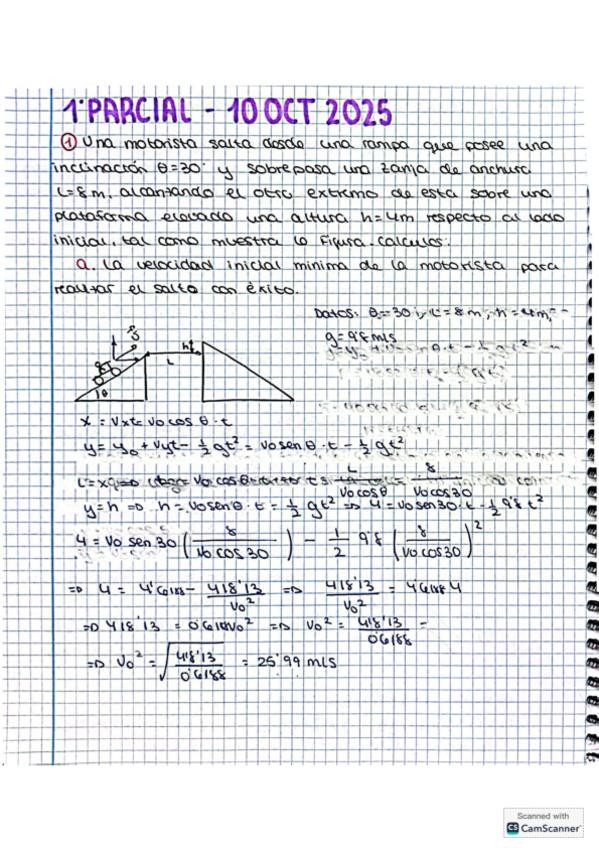 1º PARCIAL - 10 OCT 2025
① Una motorista salta desde una rampa que posee una
inclinación θ=30° y sobrepasa una zanja de anchura
L=8m, alcanzando el otro extremo de esta sobre una
plataforma elevada una altura h=4m respecto al lado
inicial, tal como muestra la Figura. Calcula:
a. La velocidad inicial mínima de la motorista para
realizar el salto con éxito.
Datos: θ=30°, L=8m, h=4m,
g=9'8 m/s
h
L
θ
x = Vxt = Vo cos θ · t
y = yo + Vyt - 1/2 gt² = Vo sen θ · t - 1/2 gt²
L = x
L / Vo cos θ = 8 / Vo cos 30
y=h => h = Vo sen θ · t = 1/2 gt² => 4 = Vo sen 30 · t - 1/2 9'8 t²
4 = Vo sen 30 (8 / Vo cos 30) - 1/2 9'8 (8 / Vo cos 30)²
=> 4 = 4'6188 - 418'13 / Vo² => 418'13 / Vo² = 4'6188 4
=> 418'13 = 0'6188 Vo² => Vo² = 418'13 / 0'6188 =
=> Vo² = √(418'13 / 0'6188) = 25'99 m/s
Scanned with
CS CamScanner